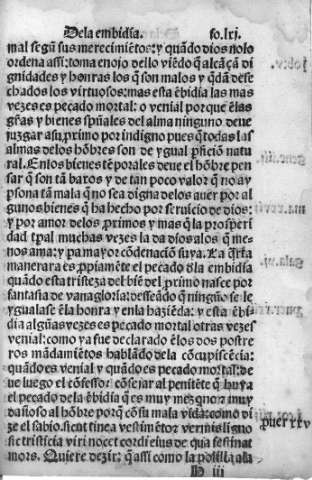 De la embidia. fo.lxj.
mal segũ sus merecimiẽtos: y quãdo dios nolo
ordena assi: toma enojo dello viẽdo q̃ alcãçã di
gnidades y honras los q̃ son malos y q̃dã dese
chados los virtuosos: mas esta ẽbidia las mas
vezes es pecado mortal: o venial porque ẽlas
gr̃as y bienes spũales del alma ninguno deue
juzgar a su p̃ximo por indigno pues q̃ todas las
almas delos hõbres son de ygual p̃ficiõ natu
ral. En los bienes tẽporales deue el hõbre pen
sar q̃ son tã baxos y de tan poco valor q̃ no ay
p̃sona tã mala q̃ no sea digna delos auer por al
gunos bienes q̃ ha hecho por seruicio de dios:
y por amor delos p̃ximos y mas q̃ la prosperi
dad tp̃al muchas vezes la da dios alos q̃ me-
nos ama: y pa mayor cõdenaciõ suya. La q̃rta
manera ra es p̃piamẽte el pecado dla embidia
quãdo esta tristeza del biẽ del p̃ximo nasce por
fantasia de vanagloria: desseãdo q̃ ningũo se le
yguala se ẽla honra y enla haziẽda: y esta ẽbi
dia algũas vezes es pecado mortal otras vezes
venial: como ya fue declarado ẽlos dos postre
ros mãdamiẽtos hablãdo dela cõcupiscẽcia:
quãdo es venial y quãdo es pecado mortal: de
ue luego el cõfessor cõsejar al penitẽte q̃ huya
el pecado dela ẽbidia q̃ es muy mezquino: muy
dañoso al hõbre por q̃ cõsu mala vida: como di
ze el sabio. sicut tinea vestimẽtor vermis ligno
sic tristicia viri nocet cordi eius de qua festinat
mors. Quiere dezir: q̃ assi como la polilla ala
H iij
job. v.
gene. iiij.
gala. v.
puer xxv